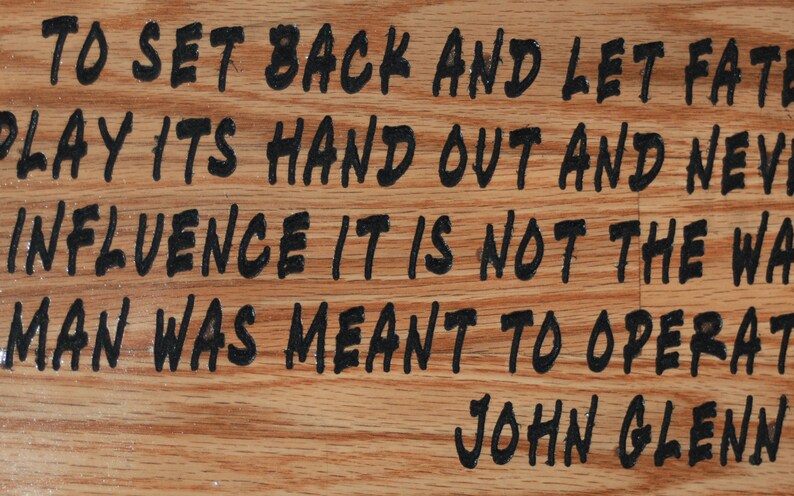 TO SET BACK AND LET FATE
PLAY ITS HAND OUT AND NEVE
INFLUENCE IT IS NOT THE WA
MAN WAS MEANT TO OPERAT
JOHN GLENN